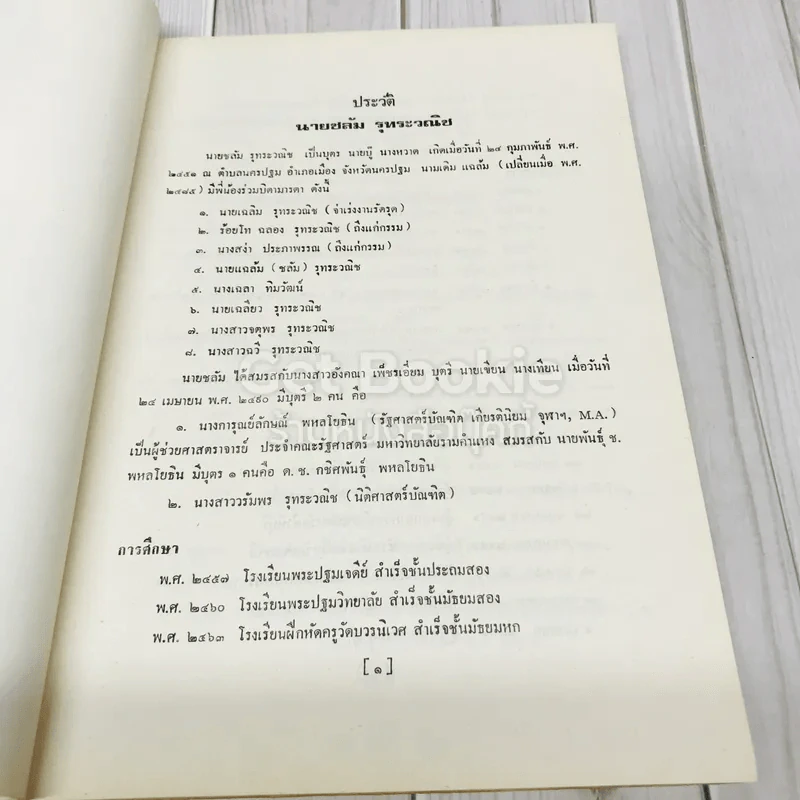 ประวัติ
นายชลัม รุทระวณิช
นายชลัม รุทระวณิช เป็นบุตร นายบู๊ นางหวาด เกิดเมื่อวันที่ ๒๔ กุมภาพันธ์ พ.ศ.
๒๔๕๑ ณ ตำบลนครปฐม อำเภอเมือง จังหวัดนครปฐม นามเดิม แฉล้ม (เปลี่ยนเมื่อ พ.ศ.
๒๔๘๕) มีพี่น้องร่วมบิดามารดา ดังนี้
๑. นายเฉลิม รุทระวณิช (จ่าเร่งงานรัดรุด)
๒. ร้อยโท ฉลอง รุทระวณิช (ถึงแก่กรรม)
๓. นางสง่า ประภาพรรณ (ถึงแก่กรรม)
๔. นายแฉล้ม (ชลัม) รุทระวณิช
๕. นางเฉลา ทิมวัฒน์
๖. นายเฉลียว รุทระวณิช
๗. นางสาวจตุพร รุทระวณิช
๘. นางสาวฉวี รุทระวณิช
นายชลัม ได้สมรสกับนางสาวอังคณา เพ็ชรเอี่ยม บุตรี นายเขียน นางเทียน เมื่อวันที่
๒๔ เมษายน พ.ศ. ๒๔๙๐ มีบุตรี ๒ คน คือ
๑. นางการุณย์ลักษณ์ พหลโยธิน (รัฐศาสตร์บัณฑิต เกียรตินิยม จุฬาฯ, M.A.)
เป็นผู้ช่วยศาสตราจารย์ ประจำคณะรัฐศาสตร์ มหาวิทยาลัยรามคำแหง สมรสกับ นายพันธุ์ ช.
พหลโยธิน มีบุตร ๑ คนคือ ด.ช. กชิศพันธุ์ พหลโยธิน
๒. นางสาววรัมพร รุทระวณิช (นิติศาสตร์บัณฑิต)
การศึกษา
พ.ศ. ๒๔๕๗ โรงเรียนพระปฐมเจดีย์ สำเร็จชั้นประถมสอง
พ.ศ. ๒๔๖๐ โรงเรียนพระปฐมวิทยาลัย สำเร็จชั้นมัธยมสอง
พ.ศ. ๒๔๖๓ โรงเรียนฝึกหัดครูวัดบวรนิเวศ สำเร็จชั้นมัธยมหก
[๑]
Get Bookie